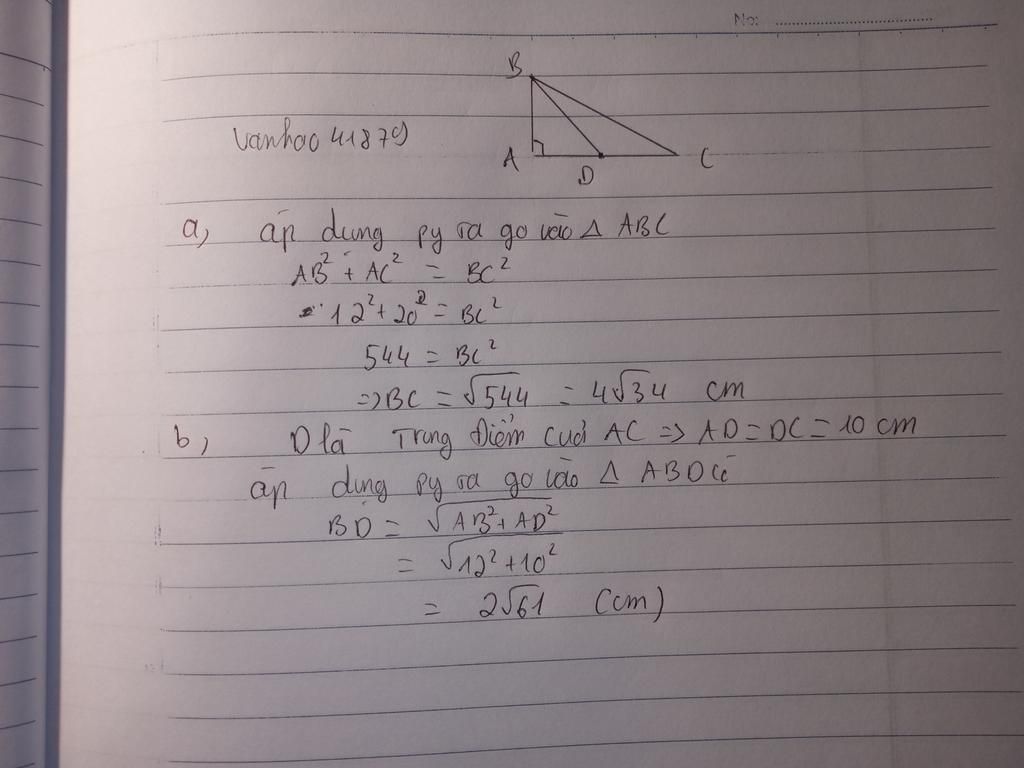 No:
B
Vanhao41879
A
D
C
a, áp dụng py ta go vào Δ ABC
AB² + AC² = BC²
12² + 20² = BC²
544 = BC²
=> BC = √544 = 4√34 cm
b, D là Trung điểm cuả AC => AD = DC = 10 cm
áp dụng py ta go vào Δ ABD có
BD = √AB² + AD²
= √12² + 10²
= 2√61 (cm)